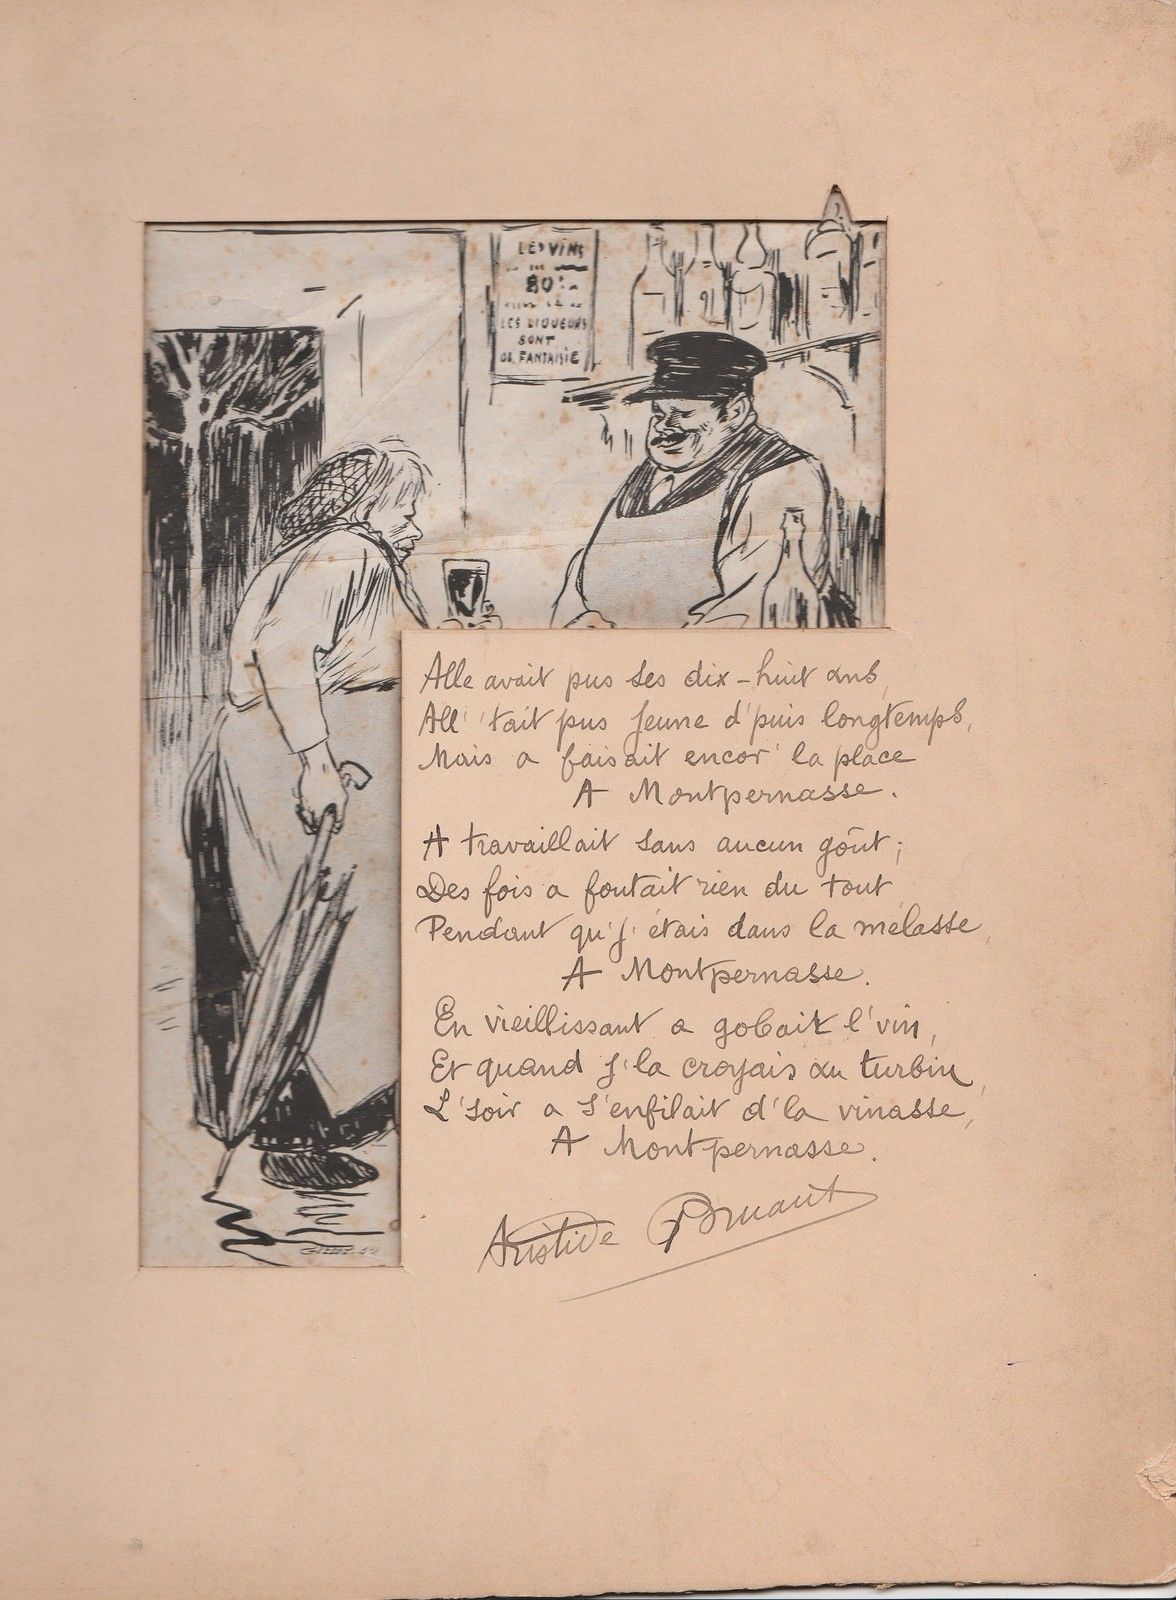 LES VINS
80
LES LIQUEURS
SONT
DE FANTAISIE
Alle avait pus ses dix-huit ans,
All' 'tait pus jeune d'puis longtemps,
Mais a faisait encor' la place
A Montpernasse.
A travaillait sans aucun goût;
Des fois a foutait rien du tout
Pendant qu'j'étais dans la mélasse,
A Montpernasse.
En vieillissant a gobait l'vin,
Et quand j'la croyais au turbin,
L'soir a s'enfilait d'la vinasse,
A Montpernasse.
Aristide Bruant